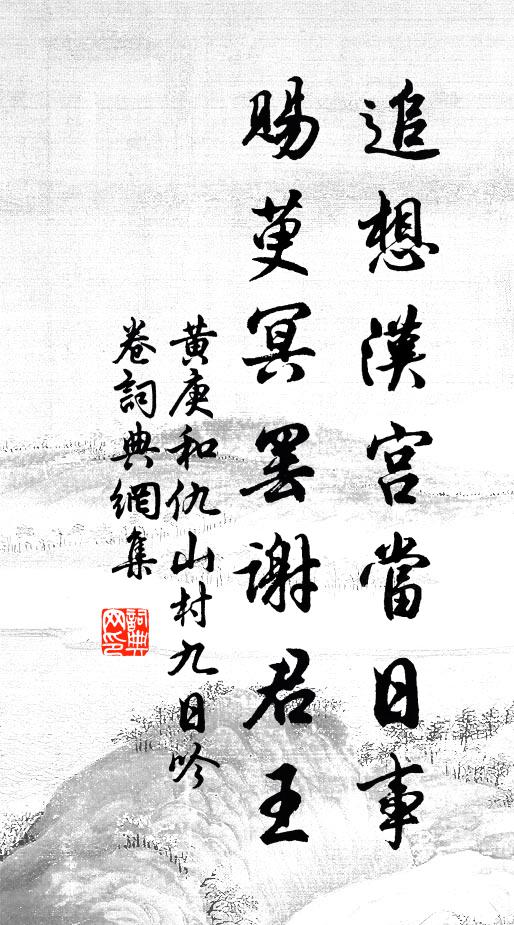 追想漢宮當日事
賜萸冥罷謝君王
黃庚和仇山村九日吟
卷詞典網集
詞典網印